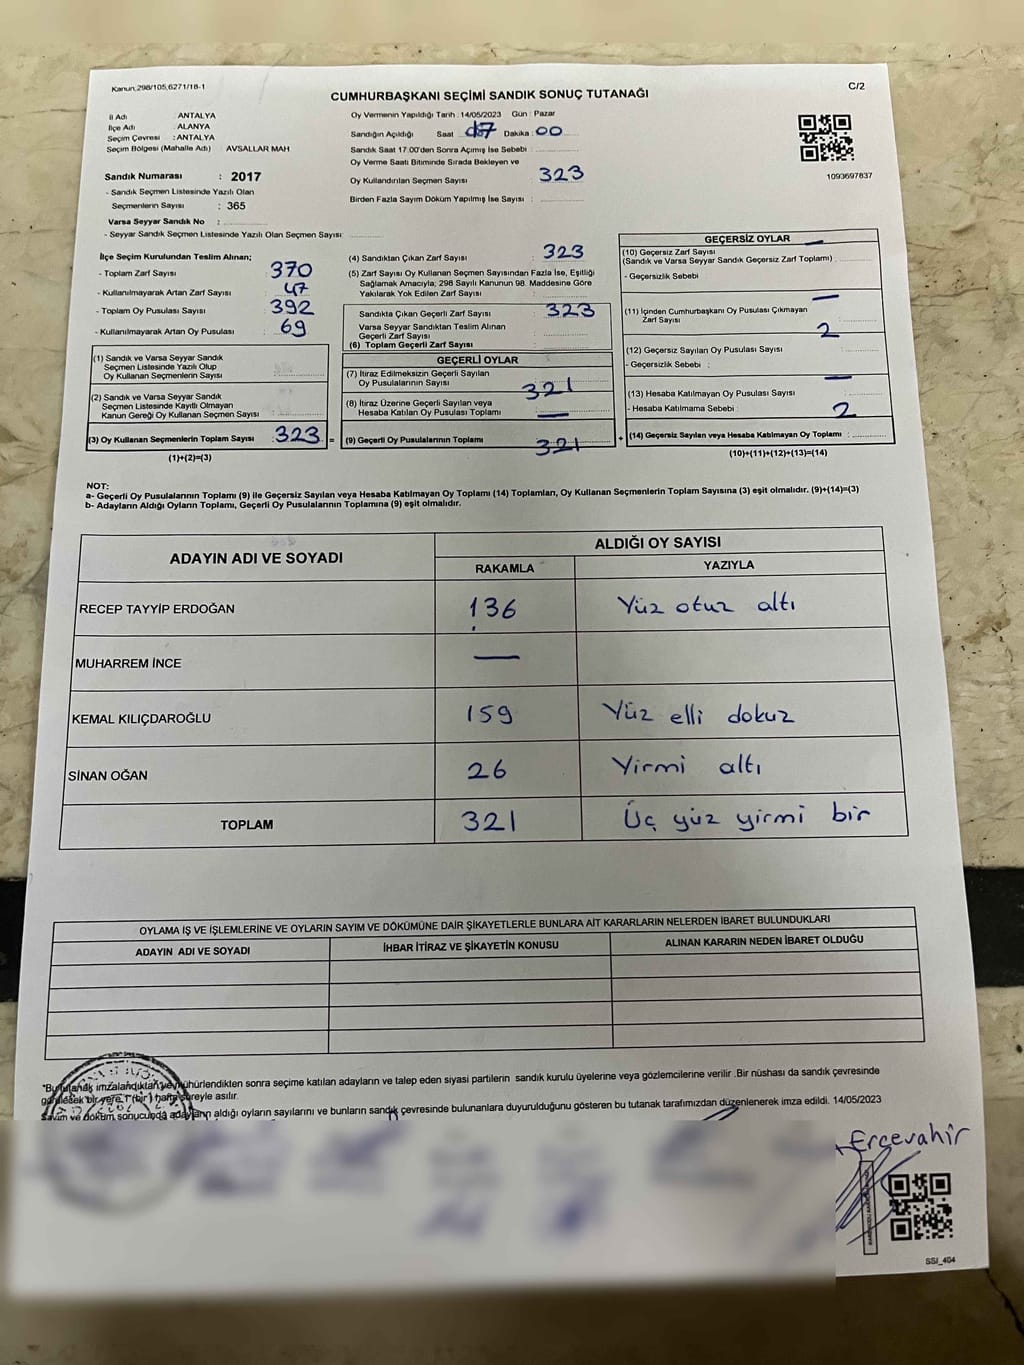 Kanun.298/105,6271/18-1
C/2
CUMHURBAŞKANI SEÇİMİ SANDIK SONUÇ TUTANAĞI
İl Adı : ANTALYA
İlçe Adı : ALANYA
Seçim Çevresi : ANTALYA
Seçim Bölgesi (Mahalle Adı) : AVSALLAR MAH
Sandık Numarası : 2017
- Sandık Seçmen Listesinde Yazılı Olan
Seçmenlerin Sayısı : 365
Varsa Seyyar Sandık No :
- Seyyar Sandık Seçmen Listesinde Yazılı Olan Seçmen Sayısı:
Oy Vermenin Yapıldığı Tarih : 14/05/2023 Gün : Pazar
Sandığın Açıldığı Saat 17 Dakika : 00
Sandık Saat 17.00'den Sonra Açımış İse Sebebi :
Oy Verme Saati Bitiminde Sırada Bekleyen ve
Oy Kullandırılan Seçmen Sayısı : 323
Birden Fazla Sayım Döküm Yapılmış İse Sayısı :
1093697837
İlçe Seçim Kurulundan Teslim Alınan;
- Toplam Zarf Sayısı : 370
- Kullanılmayarak Artan Zarf Sayısı : 47
- Toplam Oy Pusulası Sayısı : 392
- Kullanılmayarak Artan Oy Pusulası : 69
(1) Sandık ve Varsa Seyyar Sandık
Seçmen Listesinde Yazılı Olup
Oy Kullanan Seçmenlerin Sayısı
(2) Sandık ve Varsa Seyyar Sandık
Seçmen Listesinde Kayıtlı Olmayan
Kanun Gereği Oy Kullanan Seçmen Sayısı
(3) Oy Kullanan Seçmenlerin Toplam Sayısı : 323 =
(1)+(2)=(3)
(4) Sandıktan Çıkan Zarf Sayısı : 323
(5) Zarf Sayısı Oy Kullanan Seçmen Sayısından Fazla İse, Eşitliği
Sağlamak Amacıyla; 298 Sayılı Kanunun 98. Maddesine Göre
Yakılarak Yok Edilen Zarf Sayısı :
Sandıkta Çıkan Geçerli Zarf Sayısı : 323
Varsa Seyyar Sandıktan Teslim Alınan
Geçerli Zarf Sayısı
(6) Toplam Geçerli Zarf Sayısı :
GEÇERLİ OYLAR
(7) İtiraz Edilmeksizin Geçerli Sayılan
Oy Pusulalarının Sayısı : 321
(8) İtiraz Üzerine Geçerli Sayılan veya
Hesaba Katılan Oy Pusulası Toplamı : —
(9) Geçerli Oy Pusulalarının Toplamı : 321 +
GEÇERSİZ OYLAR
(10) Geçersiz Zarf Sayısı —
(Sandık ve Varsa Seyyar Sandık Geçersiz Zarf Toplamı) :
- Geçersizlik Sebebi :
(11) İçinden Cumhurbaşkanı Oy Pusulası Çıkmayan —
Zarf Sayısı : 2
(12) Geçersiz Sayılan Oy Pusulası Sayısı :
- Geçersizlik Sebebi :
(13) Hesaba Katılmayan Oy Pusulası Sayısı : —
- Hesaba Katılmama Sebebi : 2
(14) Geçersiz Sayılan veya Hesaba Katılmayan Oy Toplamı :
(10)+(11)+(12)+(13)=(14)
NOT:
a- Geçerli Oy Pusulalarının Toplamı (9) ile Geçersiz Sayılan veya Hesaba Katılmayan Oy Toplamı (14) Toplamları, Oy Kullanan Seçmenlerin Toplam Sayısına (3) eşit olmalıdır. (9)+(14)=(3)
b- Adayların Aldığı Oyların Toplamı, Geçerli Oy Pusulalarının Toplamına (9) eşit olmalıdır.
ADAYIN ADI VE SOYADI
ALDIĞI OY SAYISI
RAKAMLA YAZIYLA
RECEP TAYYİP ERDOĞAN 136 Yüz otuz altı
MUHARREM İNCE —
KEMAL KILIÇDAROĞLU 159 Yüz elli dokuz
SİNAN OĞAN 26 Yirmi altı
TOPLAM 321 Üç yüz yirmi bir
OYLAMA İŞ VE İŞLEMLERİNE VE OYLARIN SAYIM VE DÖKÜMÜNE DAİR ŞİKAYETLERLE BUNLARA AİT KARARLARIN NELERDEN İBARET BULUNDUKLARI
ADAYIN ADI VE SOYADI İHBAR İTİRAZ VE ŞİKAYETİN KONUSU ALINAN KARARIN NEDEN İBARET OLDUĞU
*Bu tutanak imzalandıktan ve mühürlendikten sonra seçime katılan adayların ve talep eden siyasi partilerin sandık kurulu üyelerine veya gözlemcilerine verilir .Bir nüshası da sandık çevresinde
görülecek bir yere 1 (bir) hafta süreyle asılır.
Sayım ve döküm sonucunda adayların aldığı oyların sayılarını ve bunların sandık çevresinde bulunanlara duyurulduğunu gösteren bu tutanak tarafımızdan düzenlenerek imza edildi. 14/05/2023
Ercevahir
SSI_404